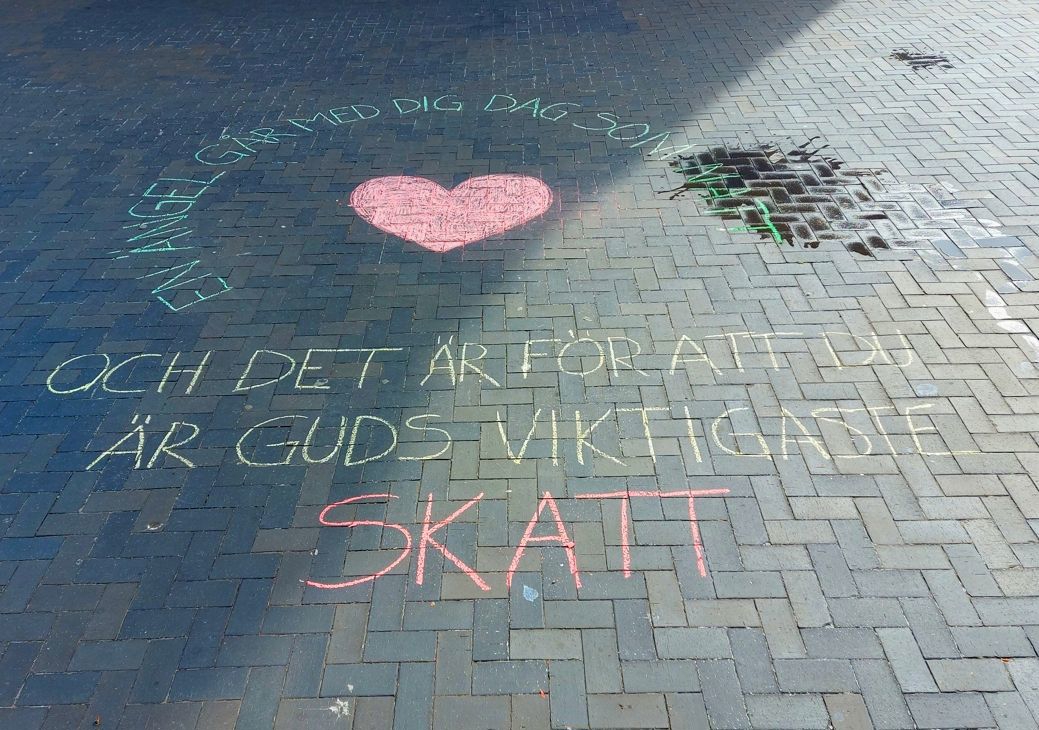 EN ÄNGEL GÅR MED DIG DAG SOM NATT
OCH DET ÄR FÖR ATT DU
ÄR GUDS VIKTIGASTE
SKATT